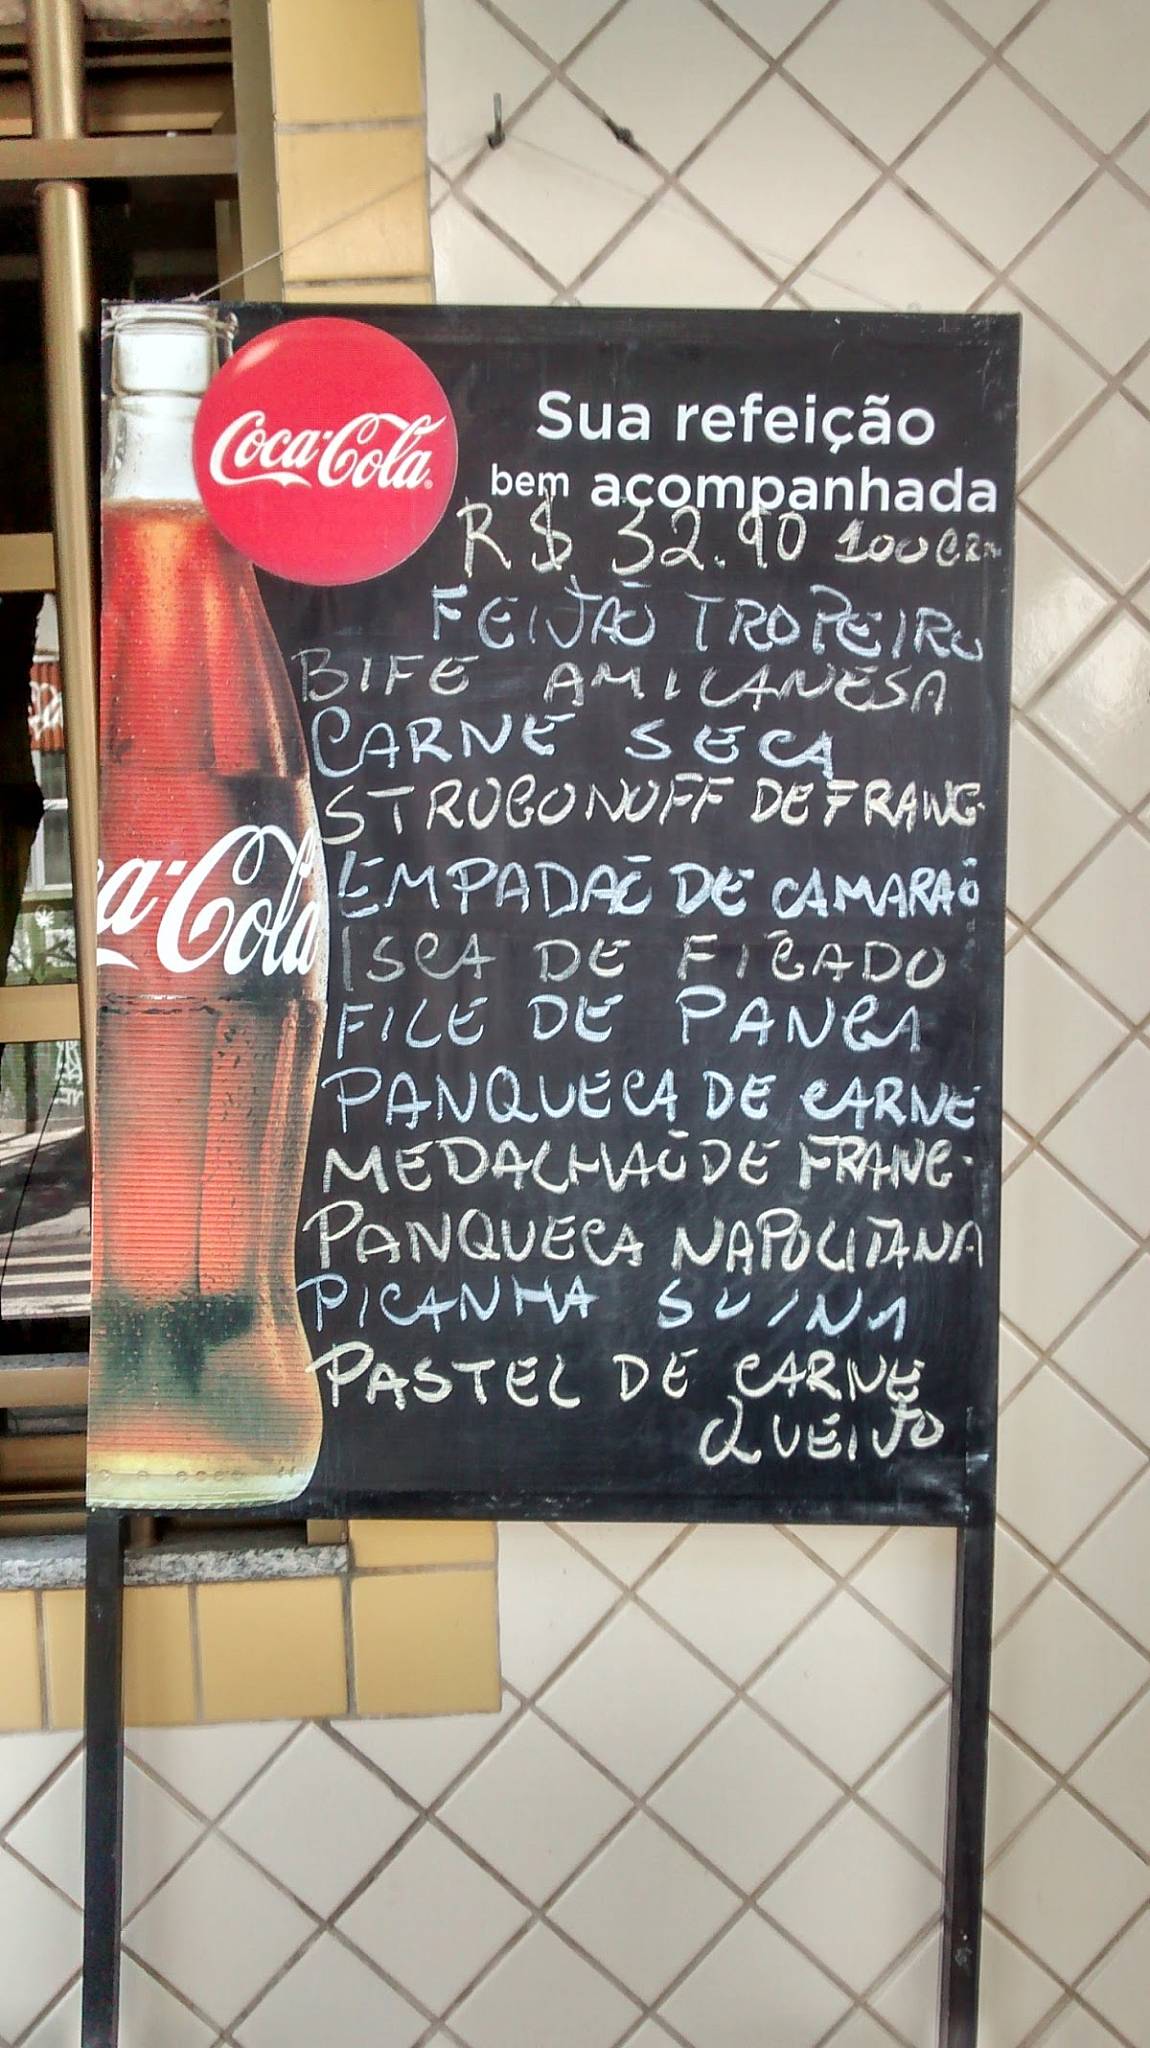 Coca-Cola
Sua refeição
bem acompanhada
R$ 32.90 100 GRM
FEIJÃO TROPEIRO
BIFE AMILANESA
CARNE SECA
STROGONOFF DE FRANG.
EMPADAÕ DE CAMARAÕ
ISCA DE FIGADO
FILE DE PANGA
PANQUECA DE CARNE
MEDALHAÕ DE FRANG.
PANQUECA NAPOLITANA
PICANHA SUINA
PASTEL DE CARNE
QUEIJO
ca-Cola